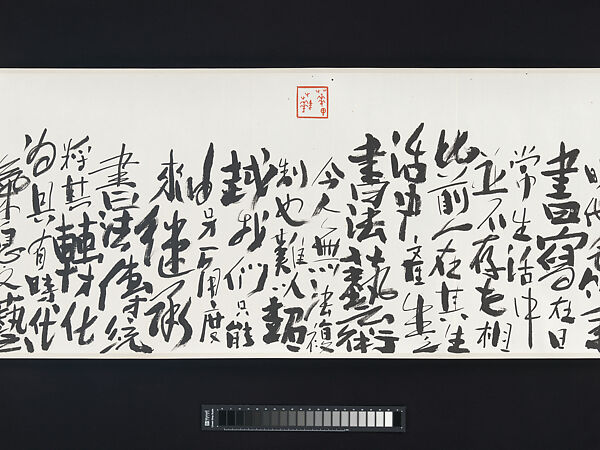 書寫在日
常生活中
並不存在相
比前人在其生
活中產生之
書法藝術
今人無法複
制也難以超
越我們只能
由另一角度
來繼承
書法傳統
將其轉化
為具有時代
氣息之藝